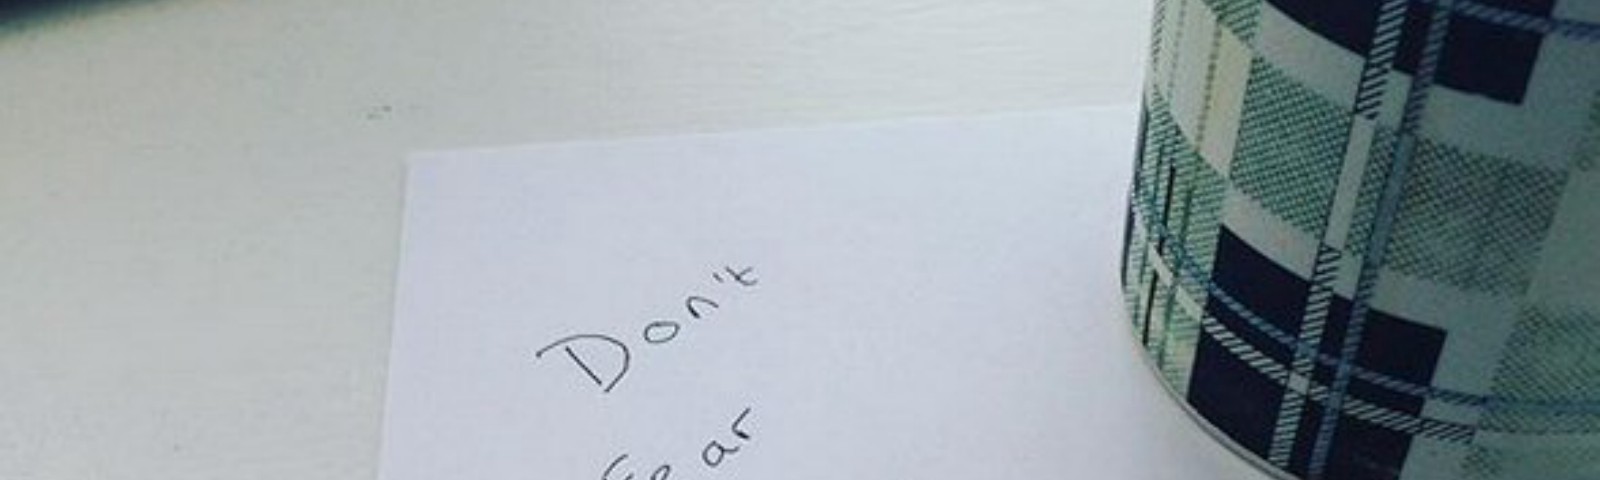 Don't
Fear